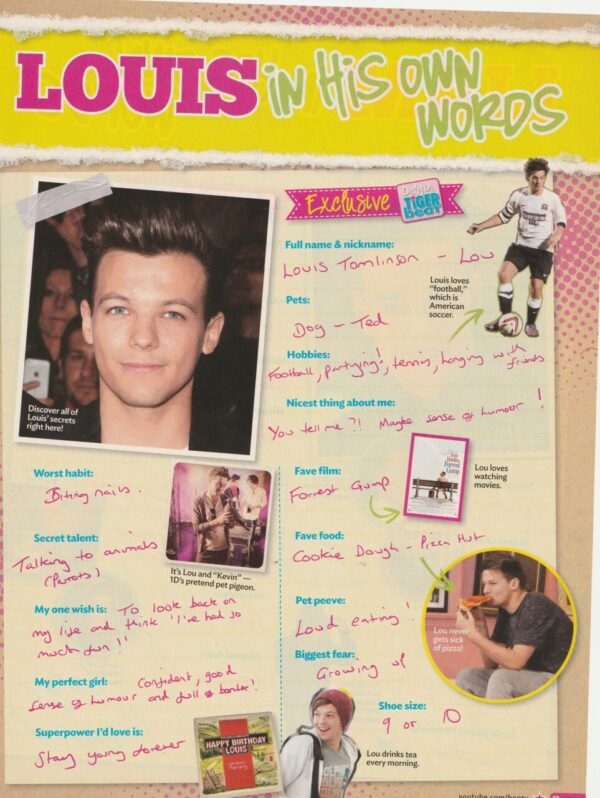 LOUIS in HiS OWN
WORDS
Exclusive
TiGER
BeaT
Full name & nickname:
Louis Tomlinson - Lou
Louis loves
"football,"
which is
American
soccer.
Pets:
Dog - Ted
Hobbies:
Football, partying!, tennis, hanging with
friends
Nicest thing about me:
You tell me ?! Maybe sense of humour !
Discover all of
Louis' secrets
right here!
Worst habit:
Biting nails.
It's Lou and "Kevin" —
1D's pretend pet pigeon.
Secret talent:
Talking to animals
(Parrots)
My one wish is: To look back on
my life and think 'I've had so
much fun !!
My perfect girl: Confident, good
sense of humour and full of banter!
Superpower I'd love is:
Stay young forever
HAPPY BIRTHDAY
LOUIS
Fave film:
Forrest Gump
Forrest
Gump
Lou loves
watching
movies.
Fave food:
Cookie Dough - Pizza Hut
Lou never
gets sick
of pizza!
Pet peeve:
Loud eating !
Biggest fear:
Growing up
Shoe size:
9 or 10
Lou drinks tea
every morning.